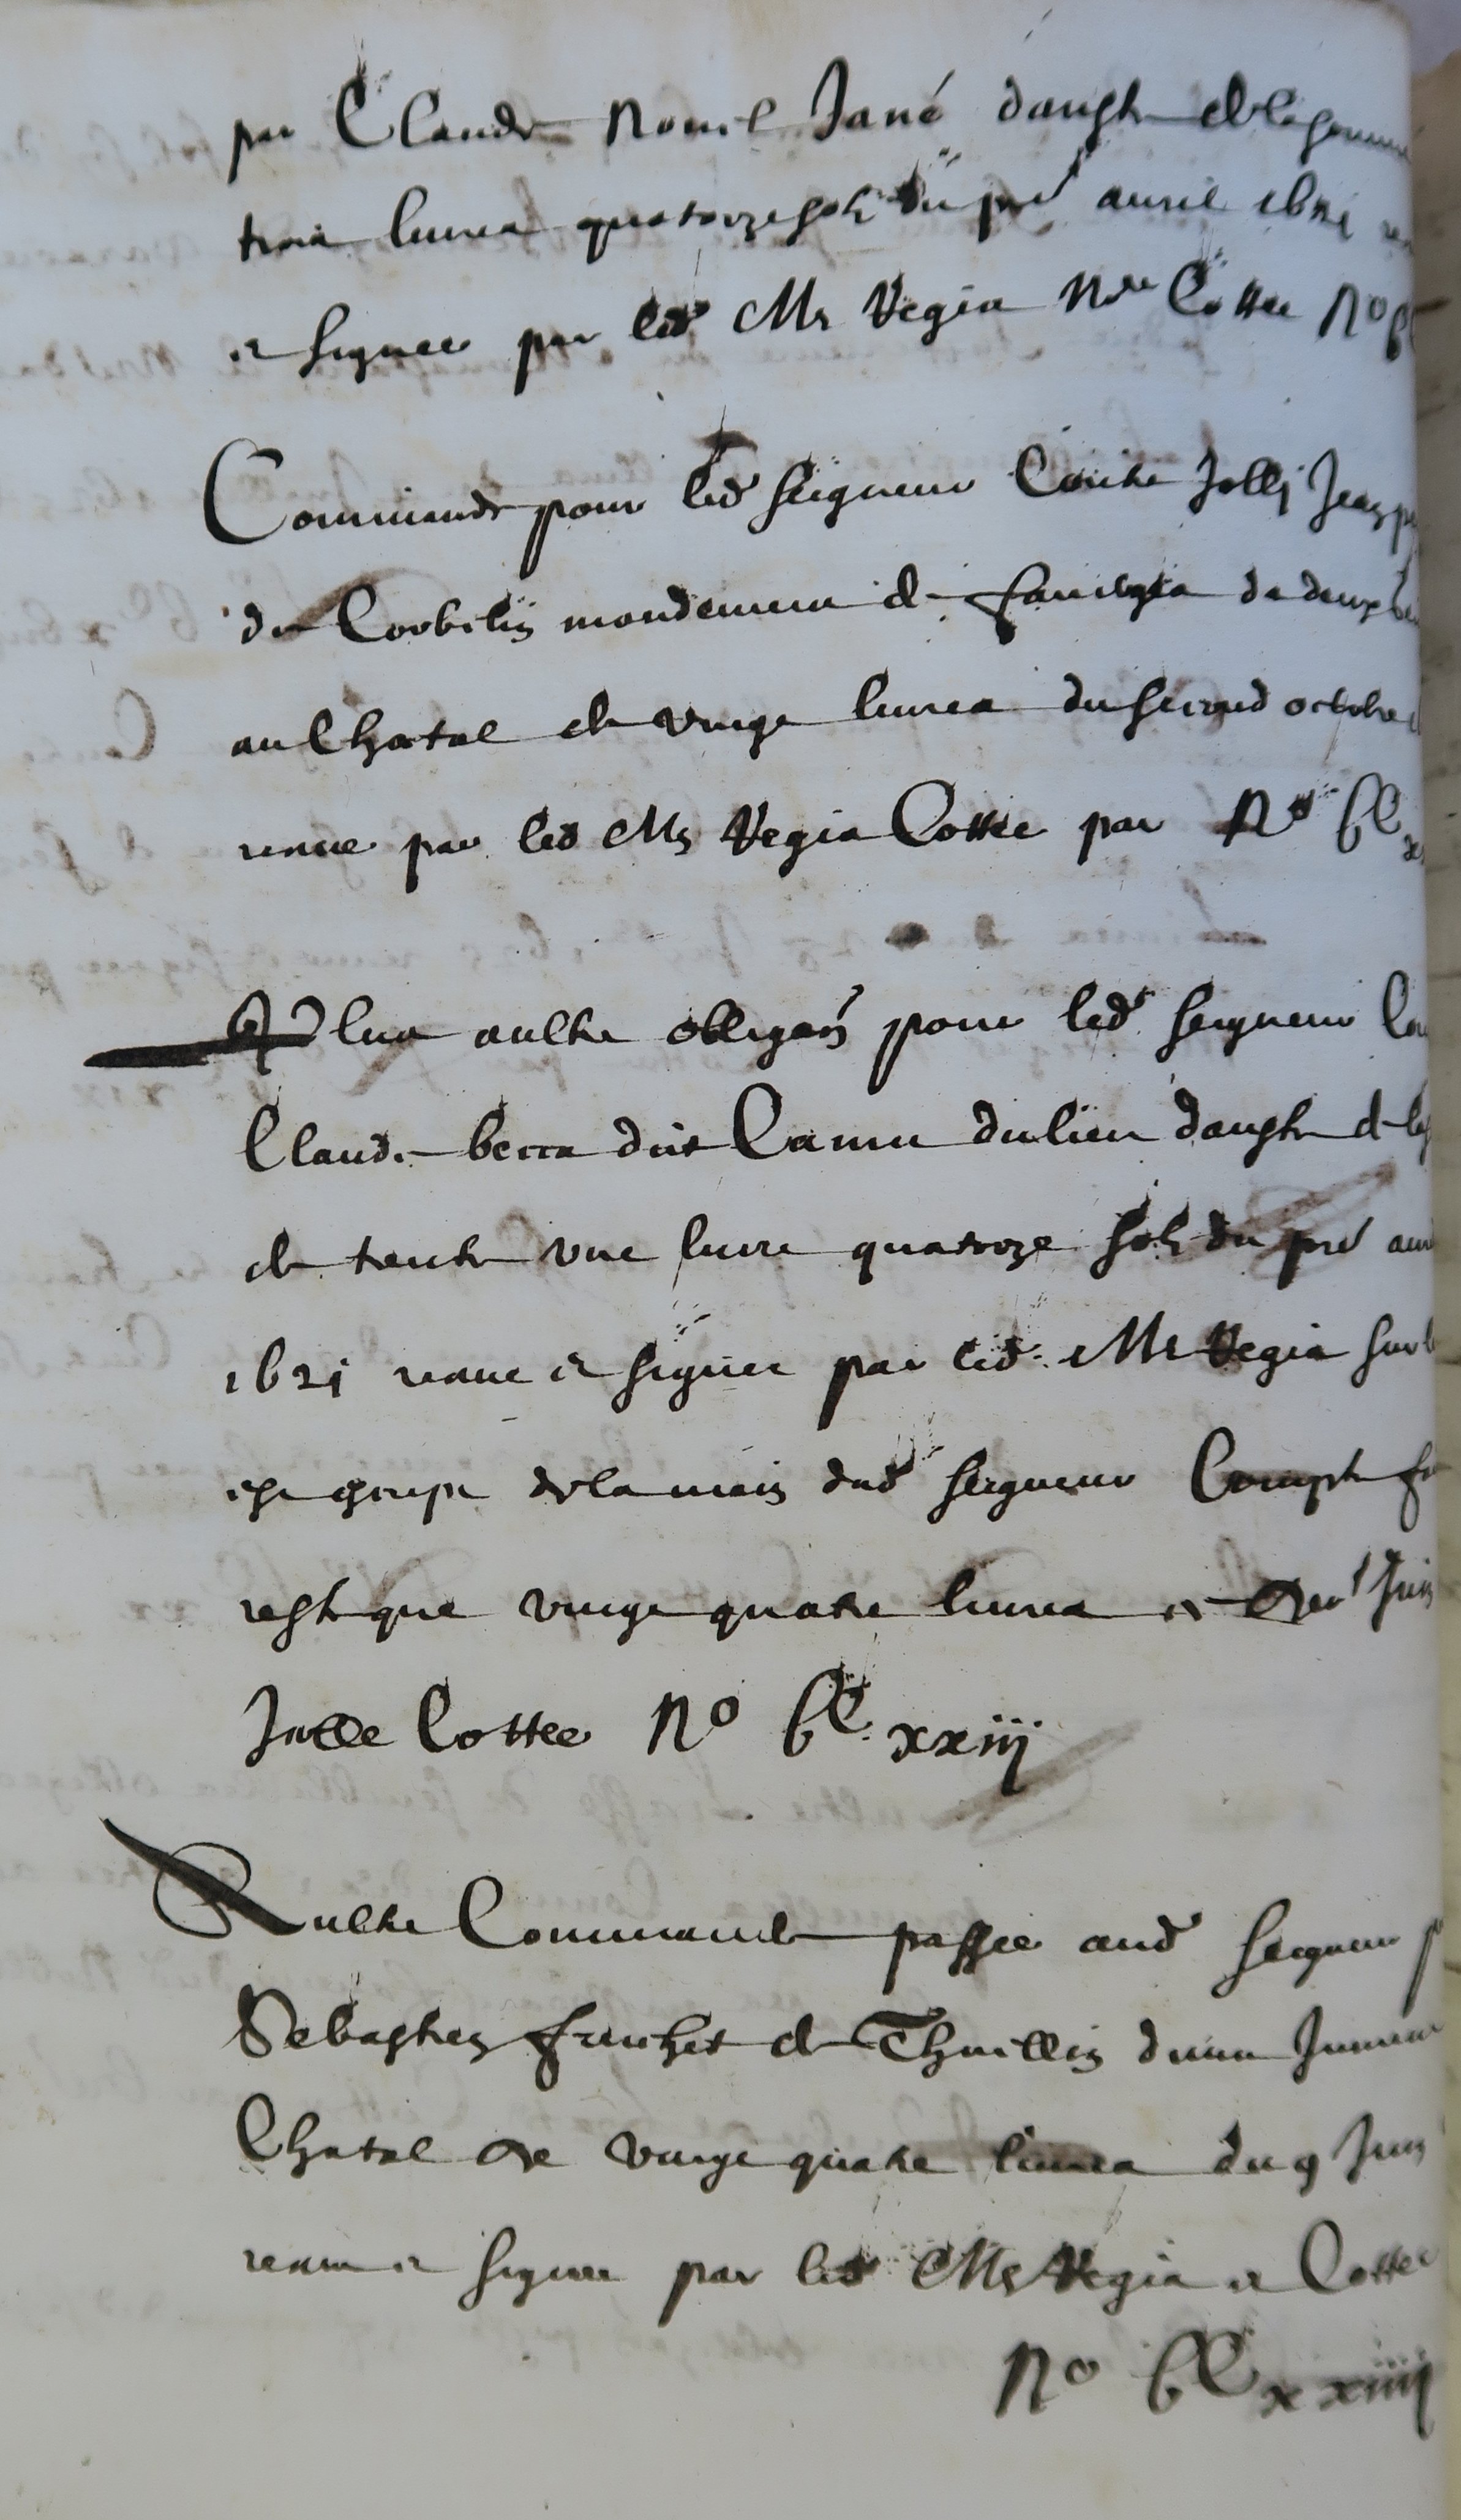 par Claude Novel Jané daoste de la somme
trois livres quatorze solz du pred avril 1621
et signee par led Me Vegia Nore Cottee No
Commande pour led seigneur Conte Jolli Jean
de Corbelin mandement de faverges de deux
au Chatal de vingt livres du second octobre
receue par led Me Vegia Cottee par No VIc
Plus aultre obligaon pour led seigneur
Claude becca dit Camu du lieu daoste de la
de trente une livre quatorze solz du pred
1621 receue et signee par led Me Vegia sur
est escript de la main dud seigneur Compte
reste que vingt quatre livres et Juin
Jolle Cottee No VIc xxiij
Aultre Commande passee aud seigneur
Sebastien de Thuillin dune Jument
Chatal de vingt quatre livres du 9 Juin
receue et signee par led Me Vegia et Cottee
No VIc xxiiij